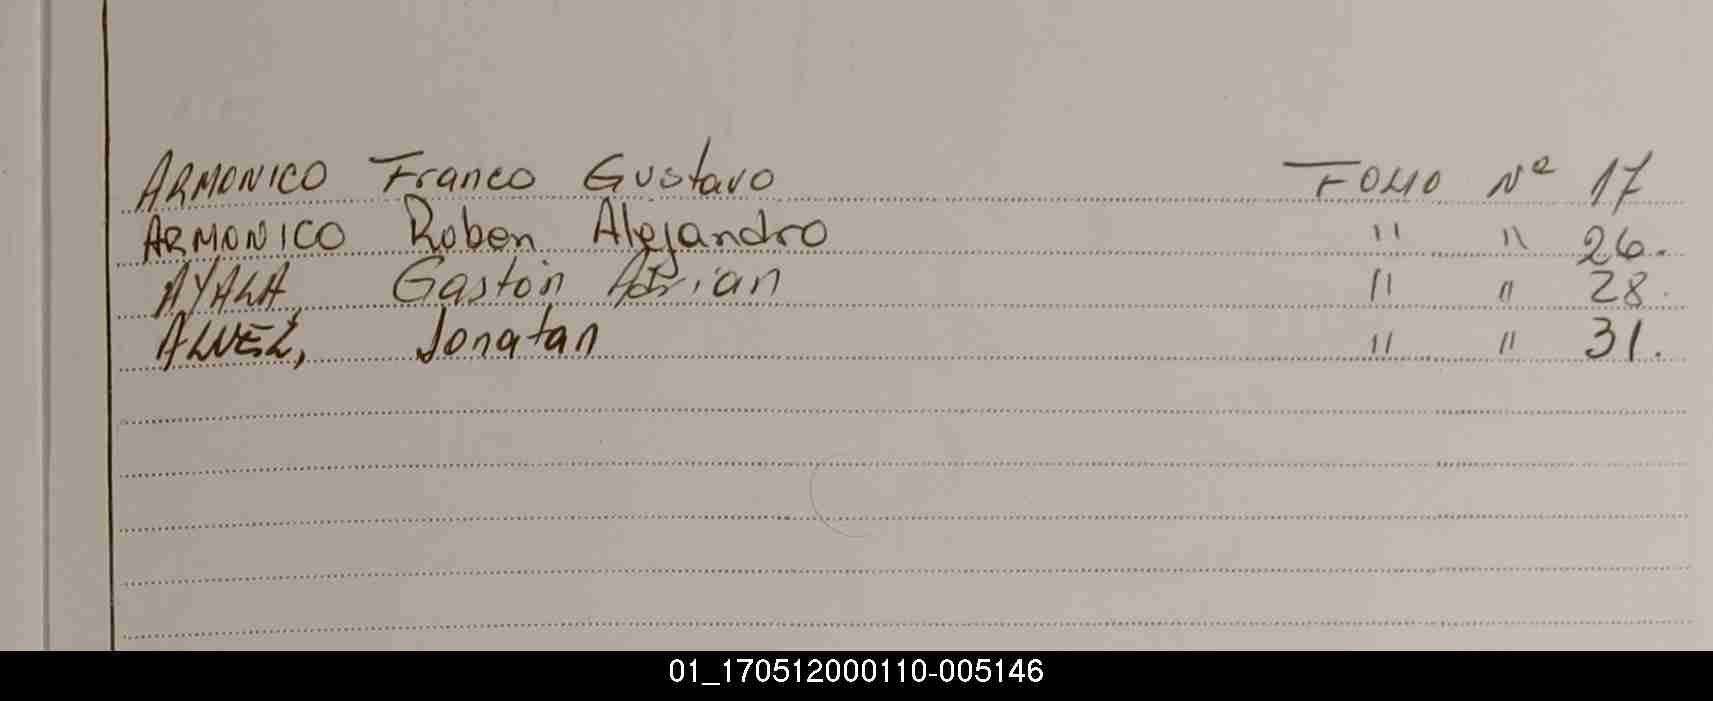 ARMONICO Franco Gustavo FOLIO Nº 17
ARMONICO Ruben Alejandro " " 26.
AYALA, Gastón Adrian " " 28.
ALVEZ, Jonatan " " 31.
01_170512000110-005146